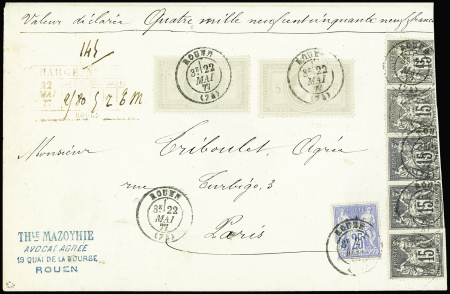 Valeur déclarée Quatre mille neuf cent cinquante neuf francs
145
CHARGE
22
MAI
77
ROUEN
3E 22
MAI
77
(74)
ROUEN
3E 22
MAI
77
(74)
15
15
15
15
15
Monsieur Triboulet, Agréé
rue Turbigo, 3
Paris
ROUEN
3E 22
MAI
77
(74)
25
THLE MAZOYHIE
AVOCAT AGRÉÉ
19 QUAI DE LA BOURSE
ROUEN